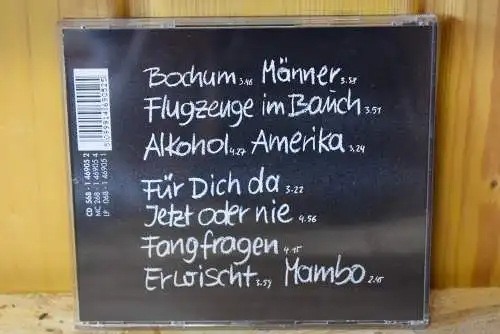 Bochum 3.46 Männer 3.58
Flugzeuge im Bauch 3.51
Alkohol 4.27 Amerika 3.24
Für Dich da 3.22
Jetzt oder nie 4.56
Fangfragen 4.15
Erwischt 3.59 Mambo 2.45
CD 568 - 1 46905 2
MC 268 - 1 46905 4
LP 068 - 1 46905 1